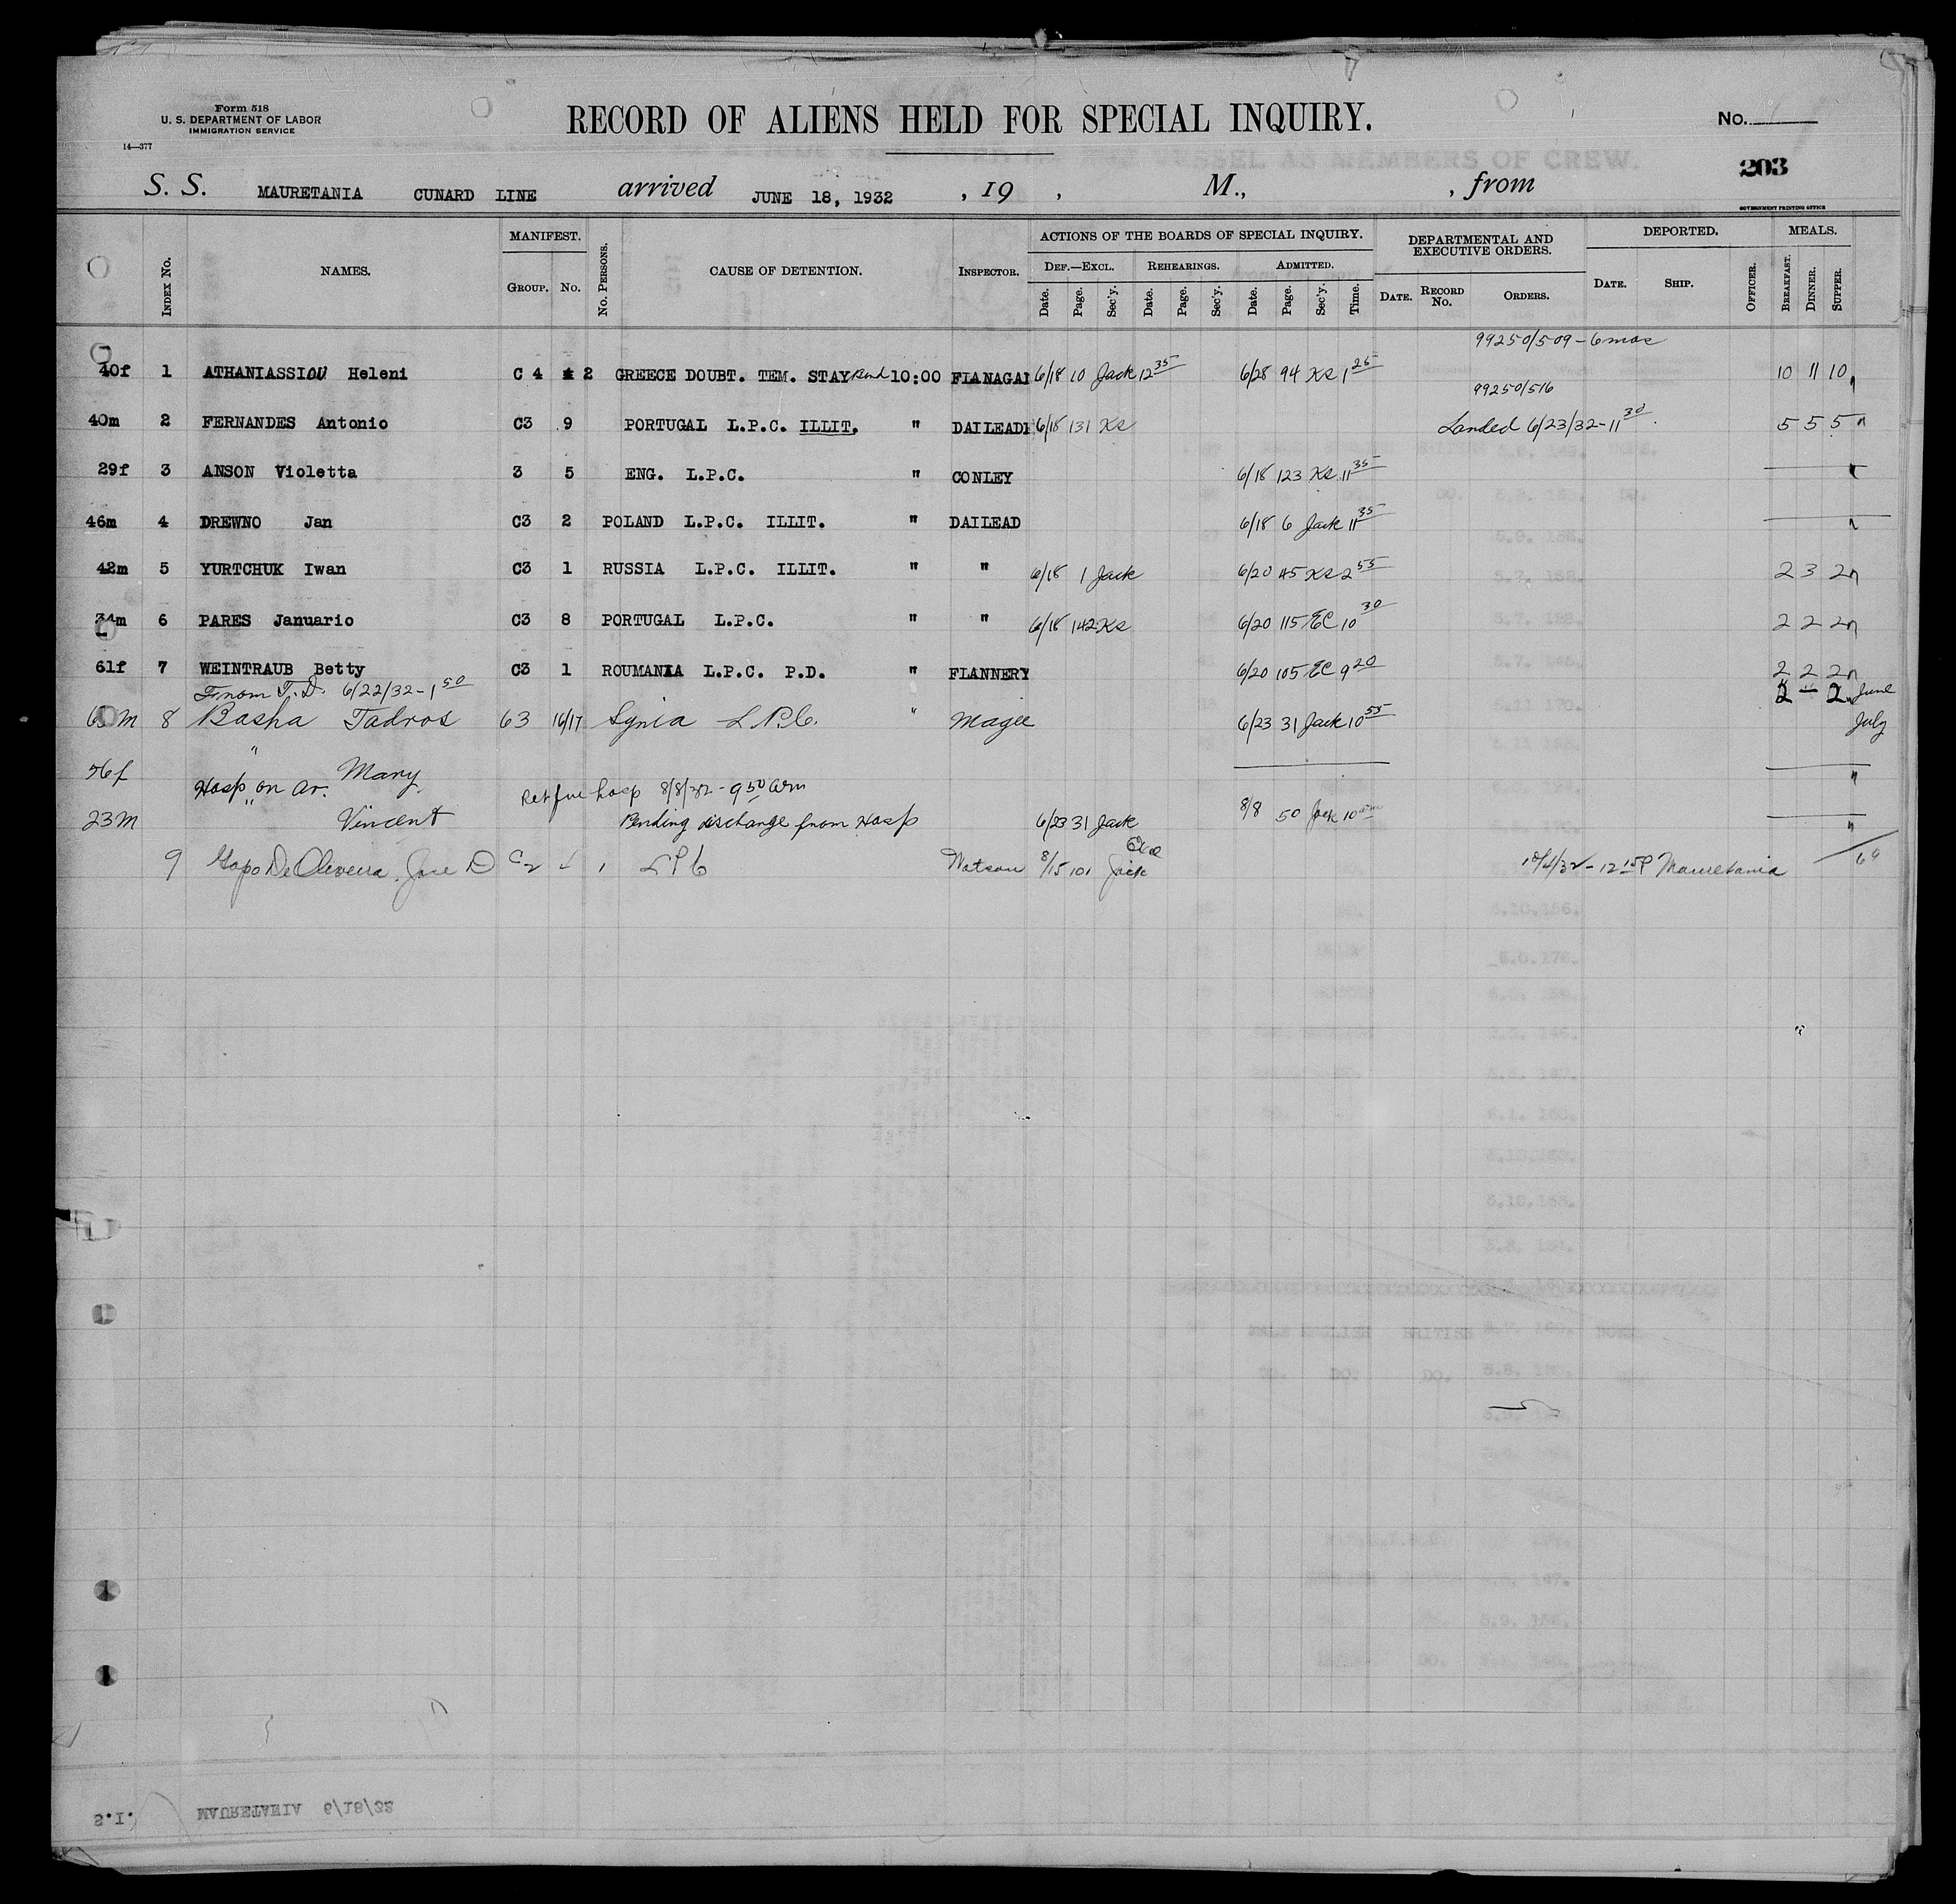 Form 518
U. S. DEPARTMENT OF LABOR
IMMIGRATION SERVICE
14—377
RECORD OF ALIENS HELD FOR SPECIAL INQUIRY.
No.
203
S. S. MAURETANIA CUNARD LINE arrived JUNE 18, 1932 , 19 , M., , from
GOVERNMENT PRINTING OFFICE
INDEX No. NAMES. MANIFEST. GROUP. No. No. PERSONS. CAUSE OF DETENTION. INSPECTOR. ACTIONS OF THE BOARDS OF SPECIAL INQUIRY. DEPARTMENTAL AND EXECUTIVE ORDERS. DEPORTED. MEALS.
DEF.—EXCL. REHEARINGS. ADMITTED.
Date. Page. Sec'y. Date. Page. Sec'y. Date. Page. Sec'y. Time. DATE. RECORD No. ORDERS. DATE. SHIP. OFFICER. BREAKFAST. DINNER. SUPPER.
99250/509 - 6 mos
40f 1 ATHANIASSIOU Heleni C 4 2 GREECE DOUBT. TEM. STAY 10:00 FLANAGAN 6/18 10 Jack 12 35 6/28 94 KS 1 25 10 11 10
99250/516
40m 2 FERNANDES Antonio C3 9 PORTUGAL L.P.C. ILLIT. " DAILEADE 6/18 131 KS Landed 6/23/32 - 11 30 5 5 5 "
29f 3 ANSON Violetta 3 5 ENG. L.P.C. " CONLEY 6/18 123 KS 11 35
46m 4 DREWNO Jan C3 2 POLAND L.P.C. ILLIT. " DAILEAD 6/18 6 Jack 11 35
42m 5 YURTCHUK Iwan C3 1 RUSSIA L.P.C. ILLIT. " " 6/18 1 Jack 6/20 45 KS 2 55 2 3 2
34m 6 PARES Januario C3 8 PORTUGAL L.P.C. " " 6/18 142 KS 6/20 115 EC 10 30 2 2 2
61f 7 WEINTRAUB Betty C3 1 ROUMANIA L.P.C. P.D. " FLANNERY 6/20 105 EC 9 20 2 2 2
From T.D. 6/22/32 - 1 50 2 - 2 June
8 Basha Tadros 63 16/17 Syria L.P.C. " Magee 6/23 31 Jack 10 55 July
56f " Mary "
Hosp on ar. Ret fm hosp 8/8/32 - 9 50 am
23m " Vincent Pending discharge from Hosp 6/23 31 Jack 8/8 50 Jack 10 "
9 De Oliveira, Jose D C2 1 L P C Watson 8/15 101 Jack Exc 12 15 P Mauretania
S.I. MAURETANIA 6/18/32